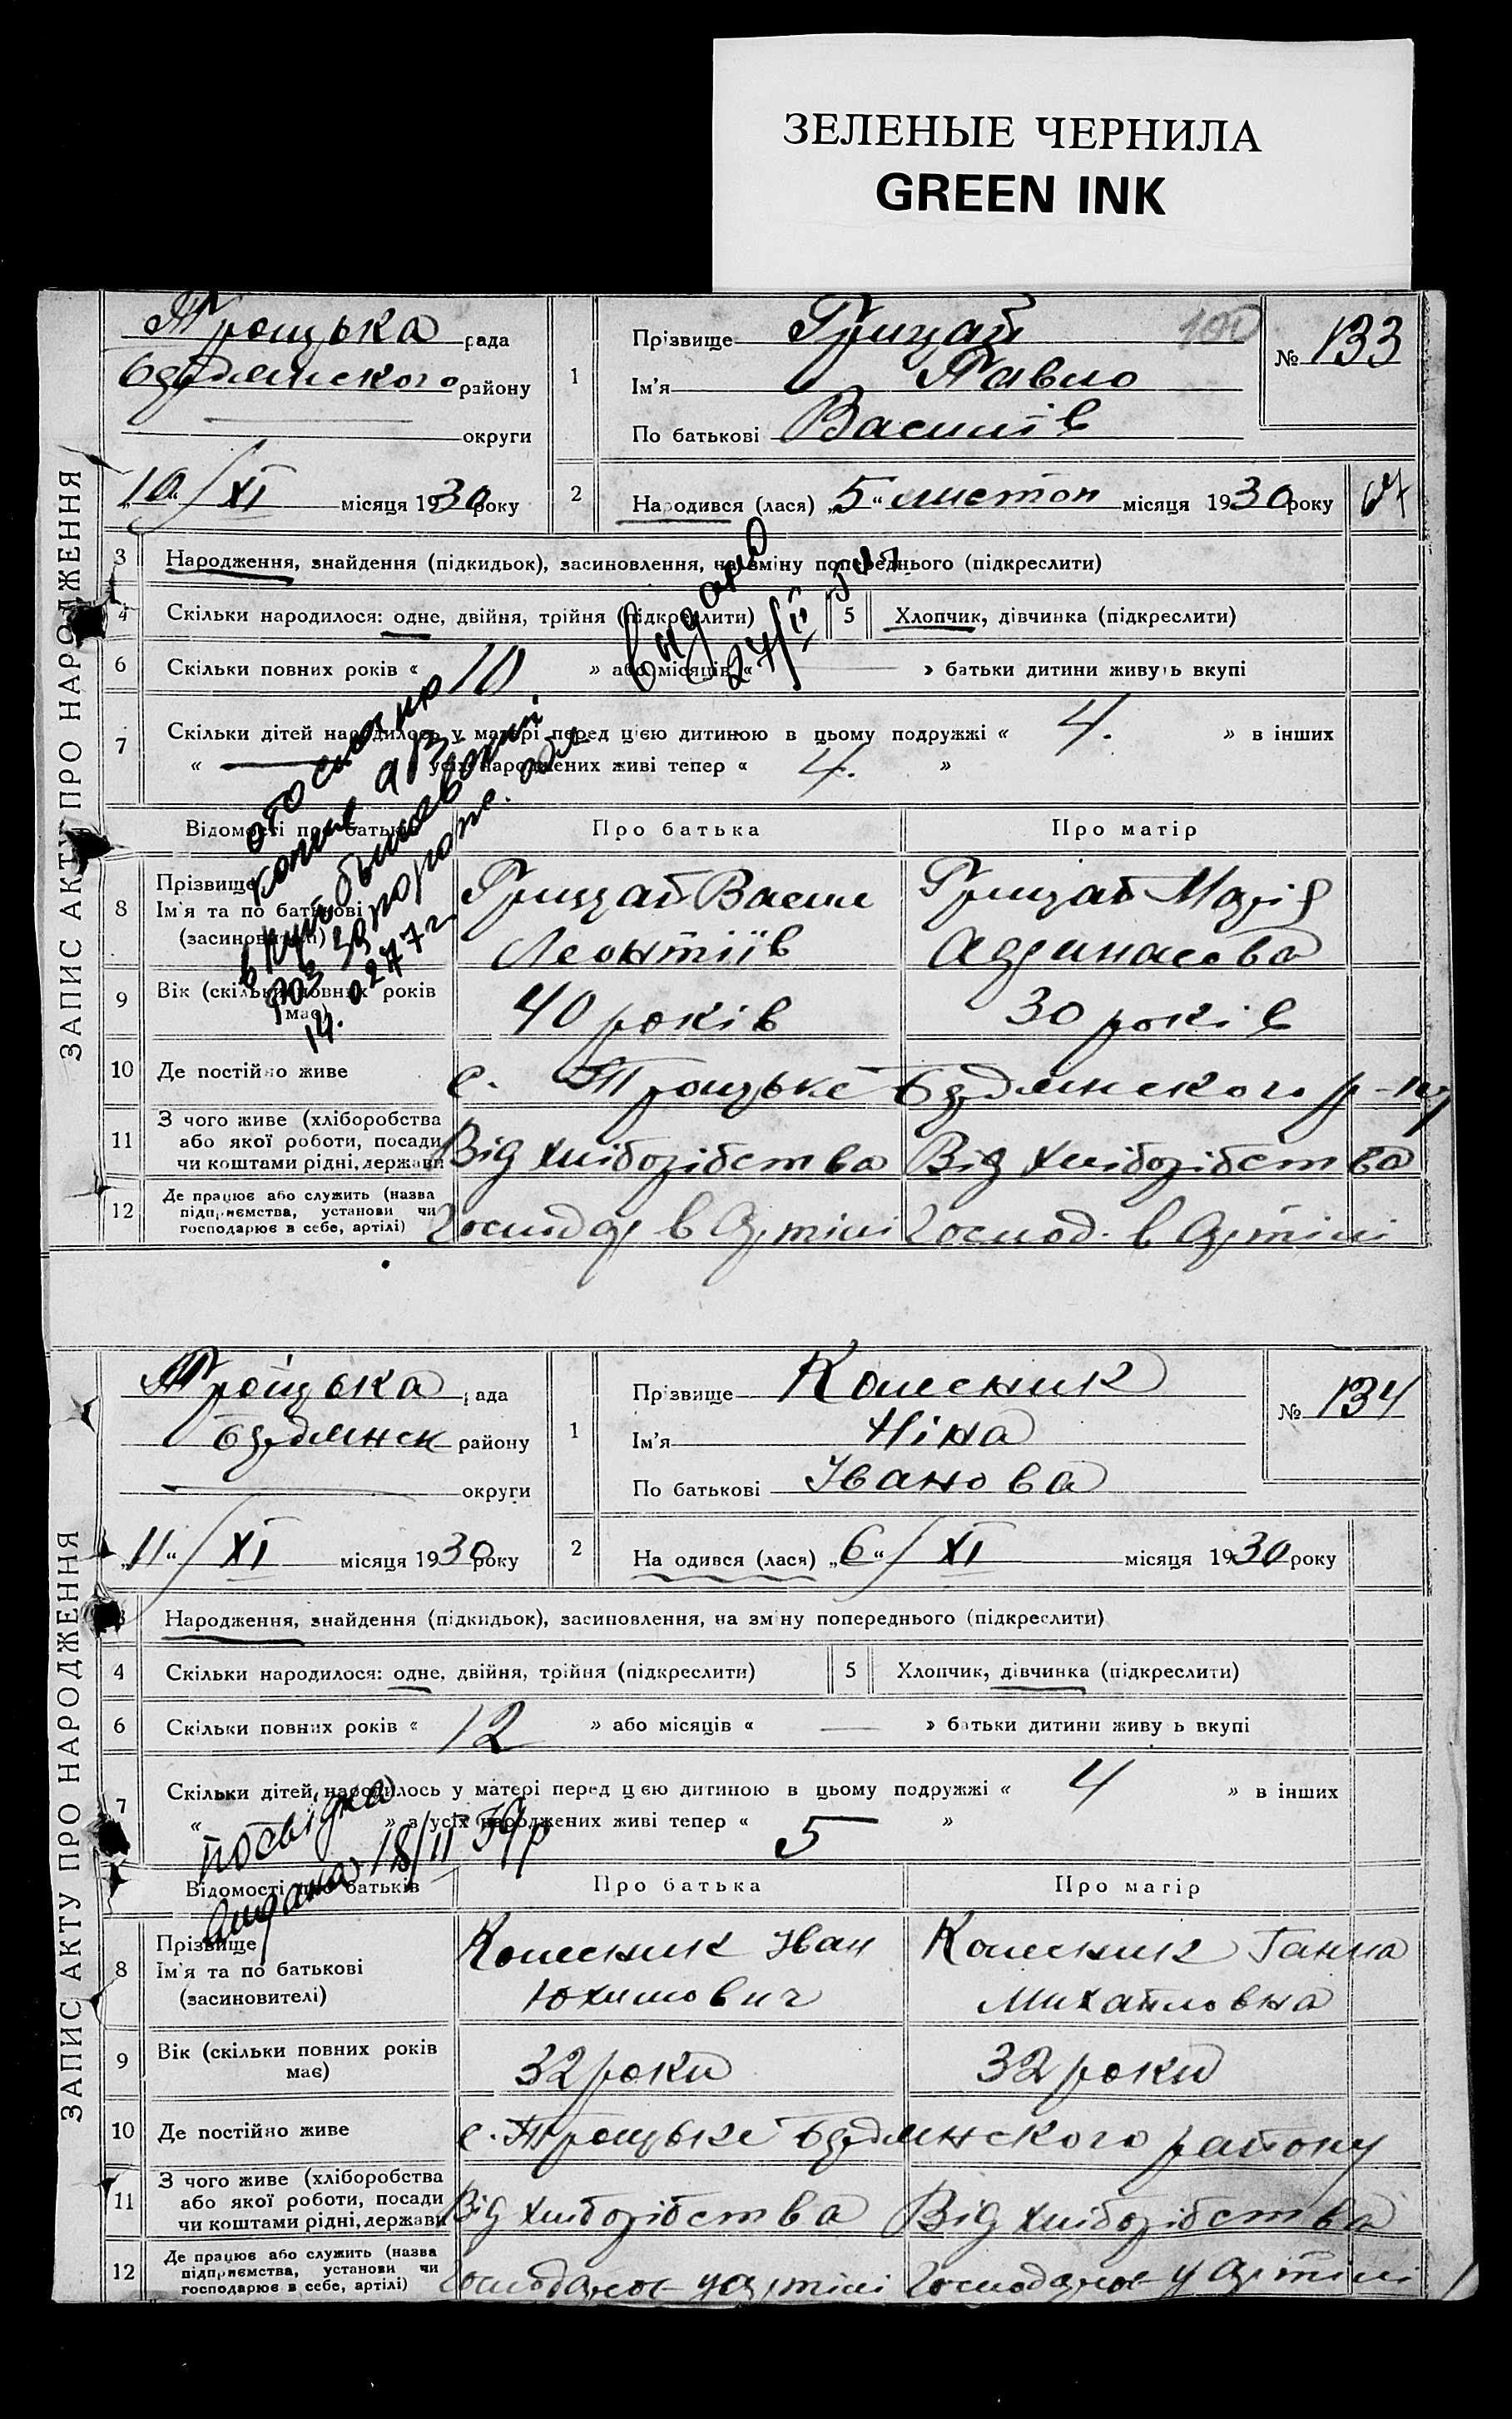 ЗЕЛЕНЫЕ ЧЕРНИЛА
GREEN INK
ЗАПИС АКТУ ПРО НАРОДЖЕННЯ
Троцька рада
району
округи
10/XI місяця 1930 року
1
Прізвище Грицай
Ім'я Павло
По батькові Василів
100
№ 133
2
Народився (лася) „5“ листоп місяця 1930 року
3 Народження, знайдення (підкидьок), засиновлення, на зміну попереднього (підкреслити)
4 Скільки народилося: одне, двійня, трійня (підкреслити) 5 Хлопчик, дівчинка (підкреслити)
6 Скільки повних років « 10 » або місяців « — » батьки дитини живуть вкупі
7 Скільки дітей народилось у матері перед цією дитиною в цьому подружжі « 4. » в інших
« — » з усіх народжених живі тепер « 4. »
видано
отослано
копие
в Куйбышевский
Відомості про батьків Про батька Про матір
8 Прізвище
Ім'я та по батькові
(засиновителі)
Грицай Васил
Леонтіїв
Грицай Марія
9 Вік (скільки повних років
має)
40 років 30 років
10 Де постійно живе с. Троцьке р-ну
11 З чого живе (хліборобства
або якої роботи, посади
чи коштами рідні, держави
Від хліборібства Від хліборібства
12 Де працює або служить (назва
підприємства, установи чи
господарює в себе, артілі)
Господар в Артілі Господ. в Артілі
ЗАПИС АКТУ ПРО НАРОДЖЕННЯ
Троцька рада
району
округи
„11“/XI місяця 1930 року
1
Прізвище Колесник
Ім'я Ніна
По батькові Іванова
№ 134
2
Народився (лася) „6“/XI місяця 1930 року
3 Народження, знайдення (підкидьок), засиновлення, на зміну попереднього (підкреслити)
4 Скільки народилося: одне, двійня, трійня (підкреслити) 5 Хлопчик, дівчинка (підкреслити)
6 Скільки повних років « 12 » або місяців « — » батьки дитини живуть вкупі
7 Скільки дітей народилось у матері перед цією дитиною в цьому подружжі « 4 » в інших
« » з усіх народжених живі тепер « 5 »
посвідка
видана 18/II 39р
Відомості про батьків Про батька Про матір
8 Прізвище
Ім'я та по батькові
(засиновителі)
Колесник Іван
Юхимович
Колесник Ганна
Михайловна
9 Вік (скільки повних років
має)
32 роки 32 роки
10 Де постійно живе с. Троцьке району
11 З чого живе (хліборобства
або якої роботи, посади
чи коштами рідні, держави
Від хліборібства Від хліборібства
12 Де працює або служить (назва
підприємства, установи чи
господарює в себе, артілі)
Господарює у артілі Господарює у артілі